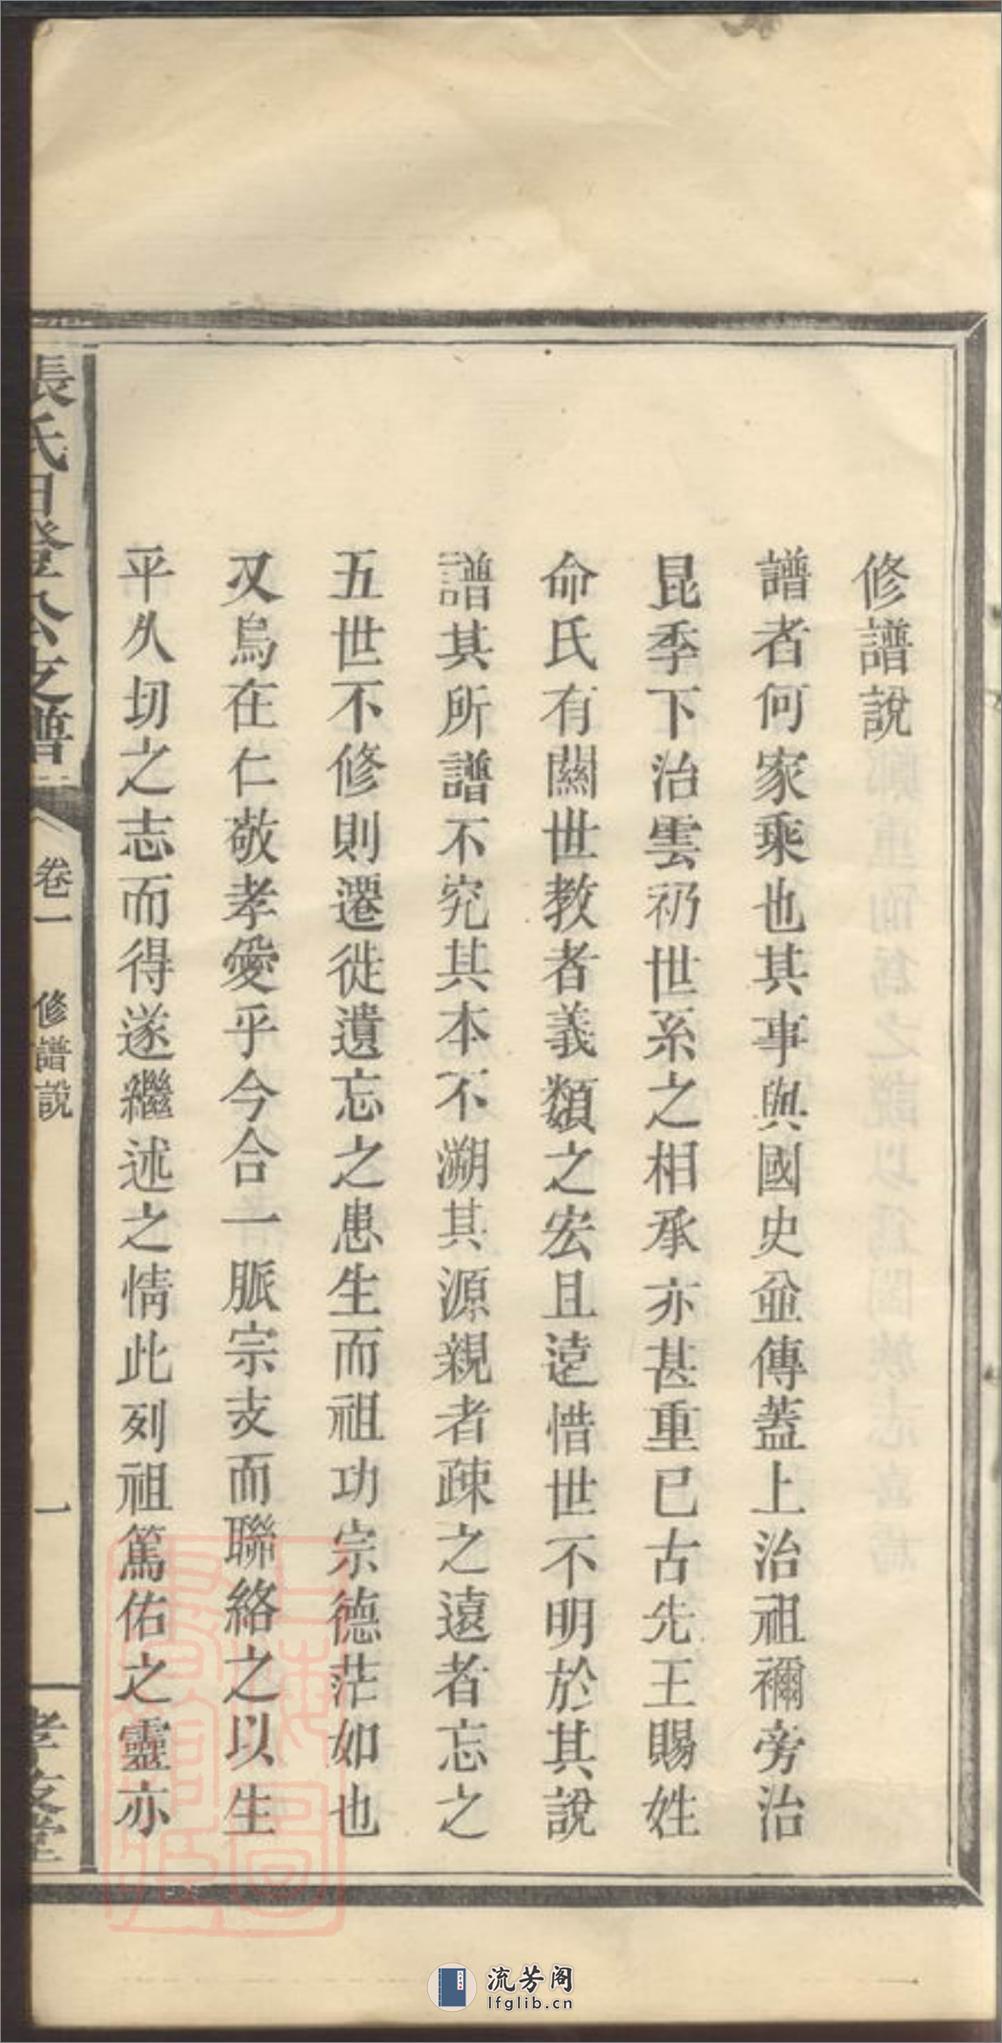 修譜說
譜者何家乘也其事與國史並傳蓋上治祖禰旁治
昆季下治雲礽世系之相承亦甚重已古先王賜姓
命氏有關世教者義類之宏且遠惜世不明於其說
譜其所譜不究其本不溯其源親者疎之遠者忘之
五世不修則遷徙遺忘之患生而祖功宗德茫如也
又烏在仁敬孝愛乎今合一脈宗支而聯絡之以生
平久切之志而得遂繼述之情此列祖篤佑之靈亦
張氏 公支譜
卷一
修譜說
一
孝友堂
流芳阁
lfglib.cn